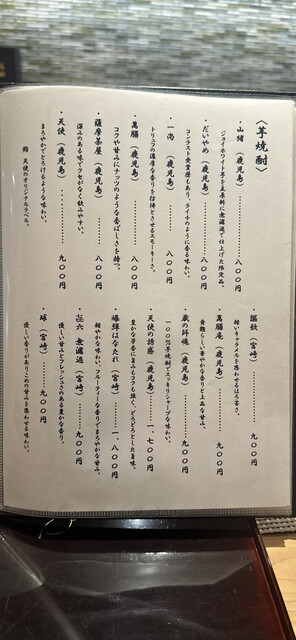 〈芋焼酎〉
・山猪（鹿児島）………八〇〇円
ジョイホワイト芋を主原料に無濾過で仕上げた限定品。
・だいやめ（鹿児島）………八〇〇円
コンテスト受賞歴もあり、ライチのように香る味わい。
・一尚（鹿児島）………八〇〇円
トリュフの濃厚な香りを彷彿とさせるスモーキーさ。
・萬膳（鹿児島）………八〇〇円
コクや甘みにナッツのような香ばしさを持つ。
・薩摩茶屋（鹿児島）………八〇〇円
深みのある味でクセがなく飲みやすい。
・天使（鹿児島）………九〇〇円
まろやかでとろけるような味わい。
鮨 天使のオリジナルラベル。
・謳歌（宮崎）………九〇〇円
軽いキャラメルを思わせるほろ苦さ。
・萬膳庵（鹿児島）………九〇〇円
青麹らしい華やかな香りと上品な甘み。
・蔵の師魂（鹿児島）………九〇〇円
一〇〇％芋焼酎でスッキリシャープな味わい。
・天使の誘惑（鹿児島）………一、七〇〇円
豊かな芳香に旨みもコクも強く、どろどろとした旨味。
・爆弾はなたれ（宮崎）………一、八〇〇円
軽やかな味わい、フルーティーな香りでまろやかな甘み。
・㐂六 無濾過（宮崎）………九〇〇円
優しい甘みとフレッシュさのある豊かな香り。
・球（宮崎）………九〇〇円
優しい香りがありこめの甘みを思わせる味わい。